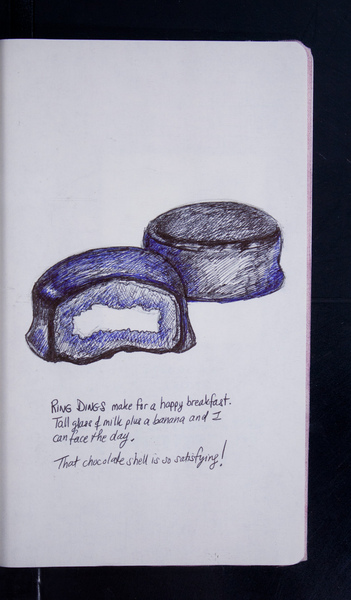 RING DINGS make for a happy breakfast.
Tall glass of milk plus a banana and I
can face the day.
That chocolate shell is so satisfying!